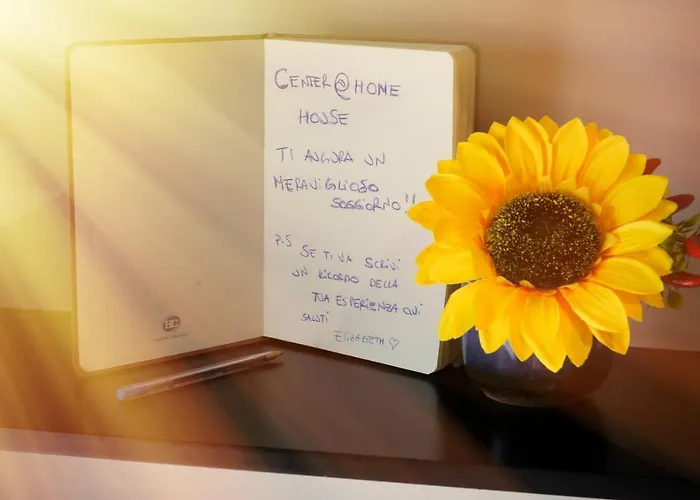 CENTER@HOME
HOUSE
TI AUGURA UN
MERAVIGLIOSO
SOGGIORNO!!
P.S SE TI VA SCRIVI
UN RICORDO DELLA
TUA ESPERIENZA QUI
SALUTI
ELIZABETH ♡